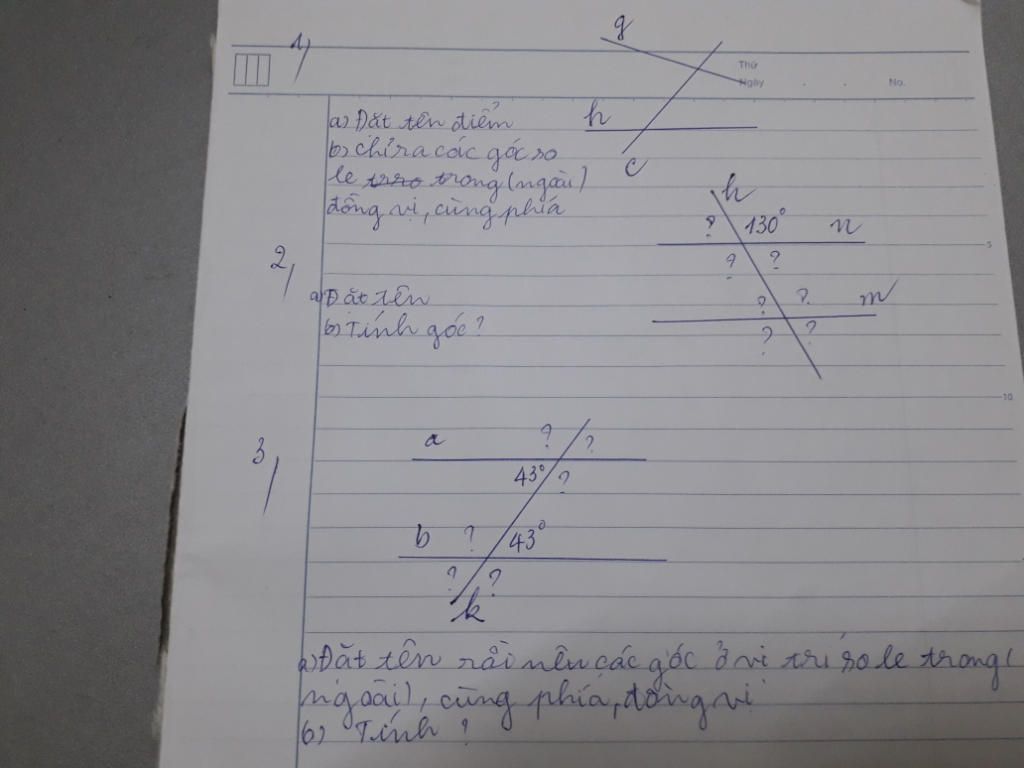 1/
g
Thứ
Ngày . . No.
a) Đặt tên điểm
h
b) chỉ ra các góc so
c
le trong (ngoài)
đồng vị, cùng phía
h
? 130° n
5
2/
? ?
a) Đặt tên
? ? m
b) Tính góc?
? ?
10
3/
a ? ?
43° ?
b ? 43°
? ?
k
a) Đặt tên rồi nêu các góc ở vị trí so le trong (
ngoài), cùng phía, đồng vị
b) Tính ?